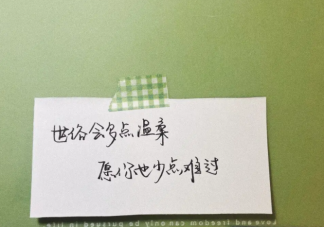 世俗会多点温柔
愿你也少点难过